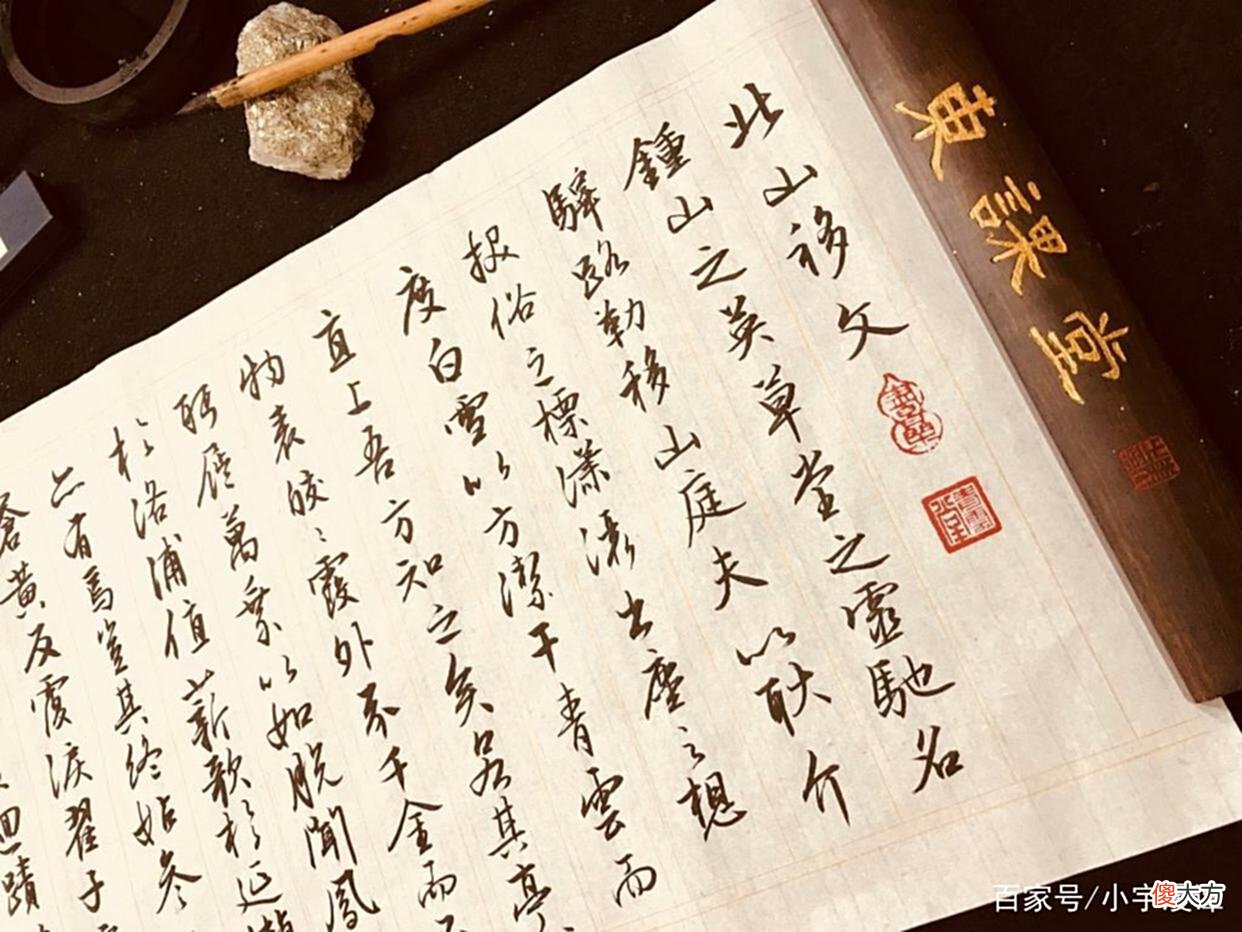 東課堂
北山移文
鍾山之英草堂之靈馳名
驛路勒移山庭夫以耿介
拔俗之標瀟灑出塵之想
度白雪以方潔干青雲而
直上吾方知之矣若其亭
物表皎〻霞外芥千金而
眄屣萬乘以如脫聞鳳
於洛浦值薪歌於延
亦有焉豈其終始參
蒼黃反覆淚翟子
迴蹟
百家号/小字
傻大方